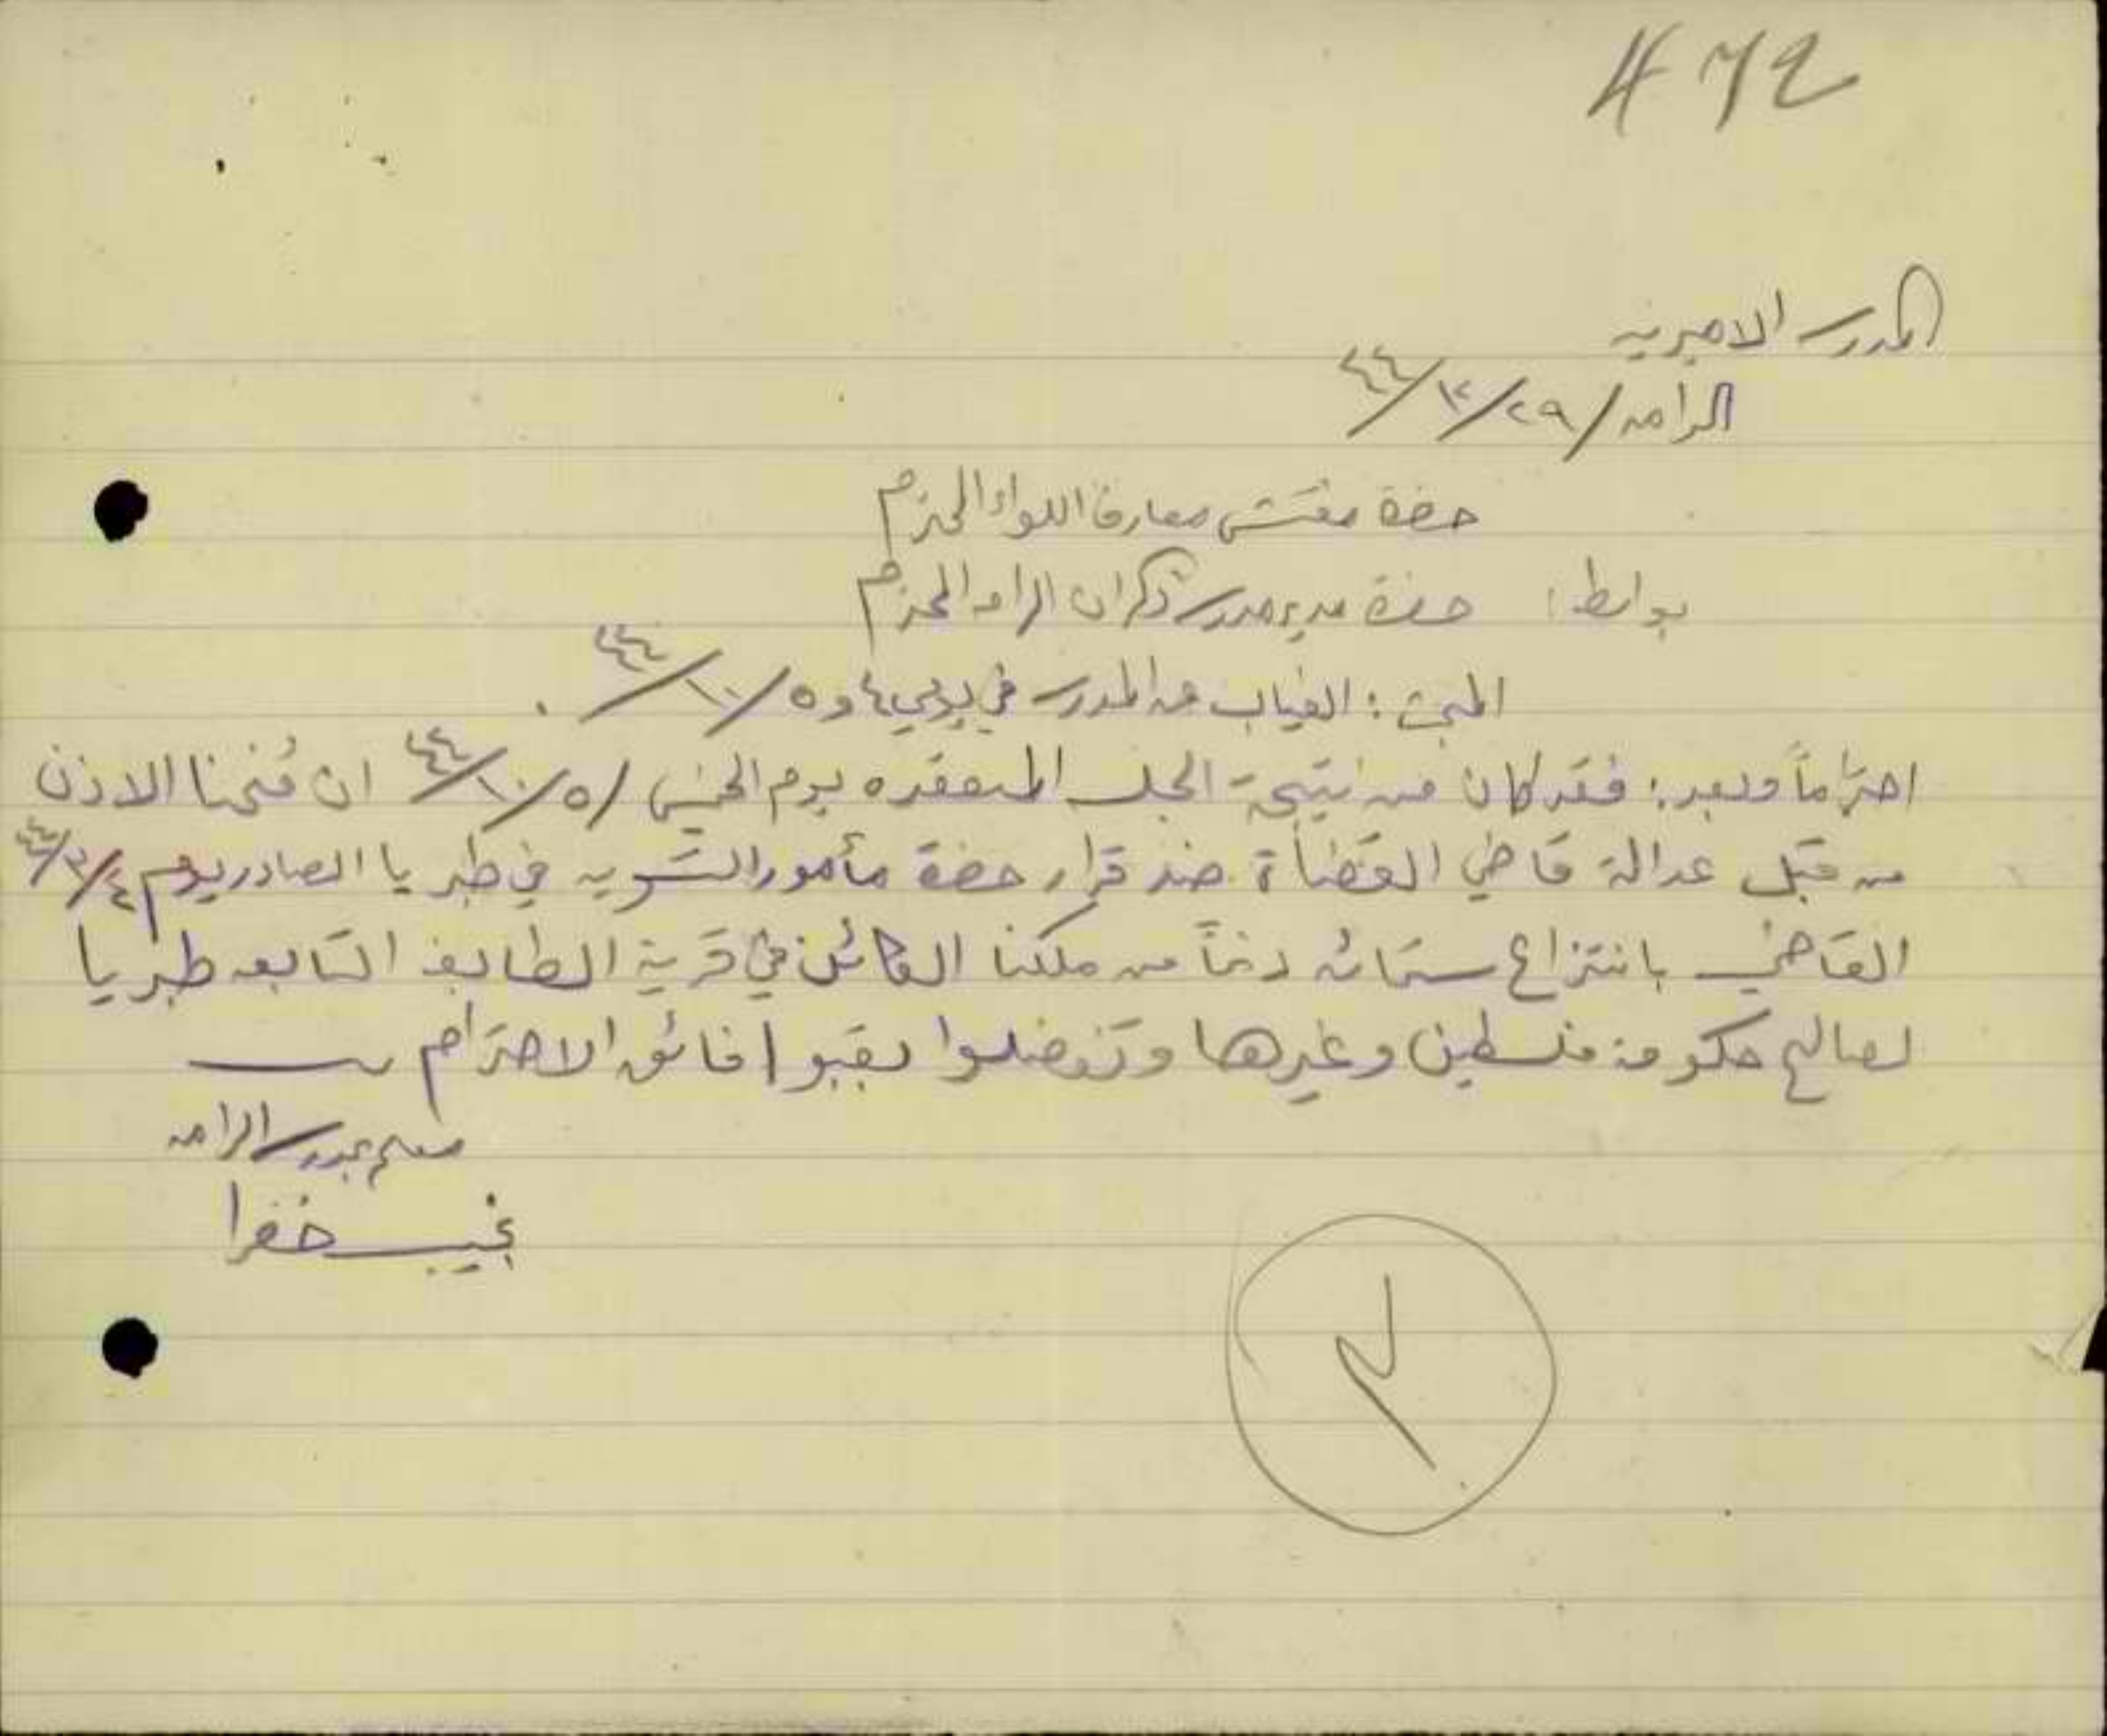 472
المدرسه الاميريه
الرامه / ٢٩/١٢/٤٤
حضرة مفتش معارف اللواء المحترم
بواسطة: حضرة مدير مدرسة ذكران الرامه المحترم
المبحث: الغياب عن المدرسه في يومي ٤ و ٥/١٠/٤٤.
احتراماً وبعد: فقد كان من نتيجة الجلسه المنعقده يوم الخميس /٥/١٠/٤٤ ان مُنحنا الاذن
من قبل عدالة قاضي القضاة ضد قرار حضرة مأمور التسويه في طبريا الصادر يوم
القاضي بانتزاع ستمائه دنماً من ملكنا الكائن في قرية الطابغه التابعه طبريا
لصالح حكومة فلسطين وغيرها وتفضلوا بقبول فائق الاحترام
معلم بمدرسة الرامه
نجيب خفرا